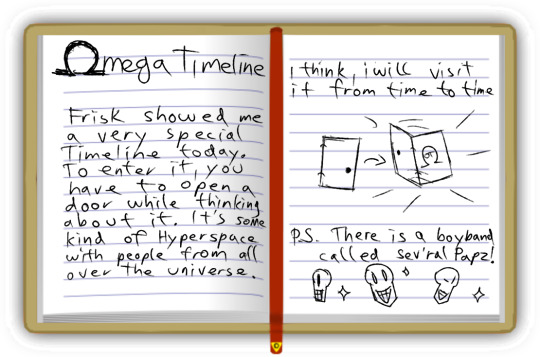 Ωmega Timeline
Frisk showed me
a very special
Timeline today.
To enter it, you
have to open a
door while thinking
about it. It's some
kind of Hyperspace
with people from all
over the universe.
i think, i will visit
it from time to time
Ω
P.S. There is a boyband
called sev'ral Papz!